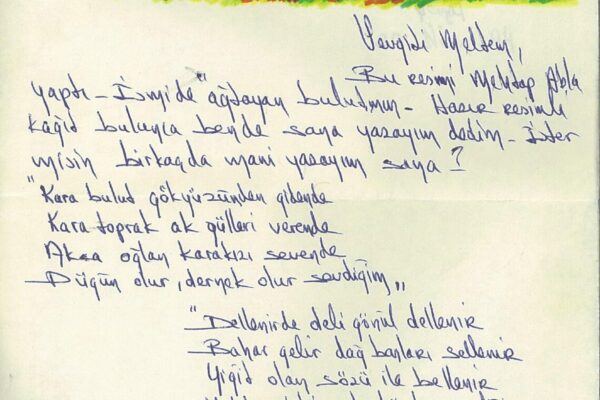 Sevgili Meltem,
Bu resimi Mehtap Abla
yaptı - İsmide "ağlayan bulutmuş - Hazır resimli
kağıt bulunca bende sana yazayım dedim - İster
misin birkaçda mani yazayım sana?
"Kara bulut gökyüzünden gidende
Kara toprak ak gülleri verende
Akça oğlan kara kızı sevende
Düğün olur, dernek olur sevdiğim"
"Dellenirde deli gönül dellenir
Bahar gelir dağ başları sellenir
Yiğit olan sözü ile bellenir